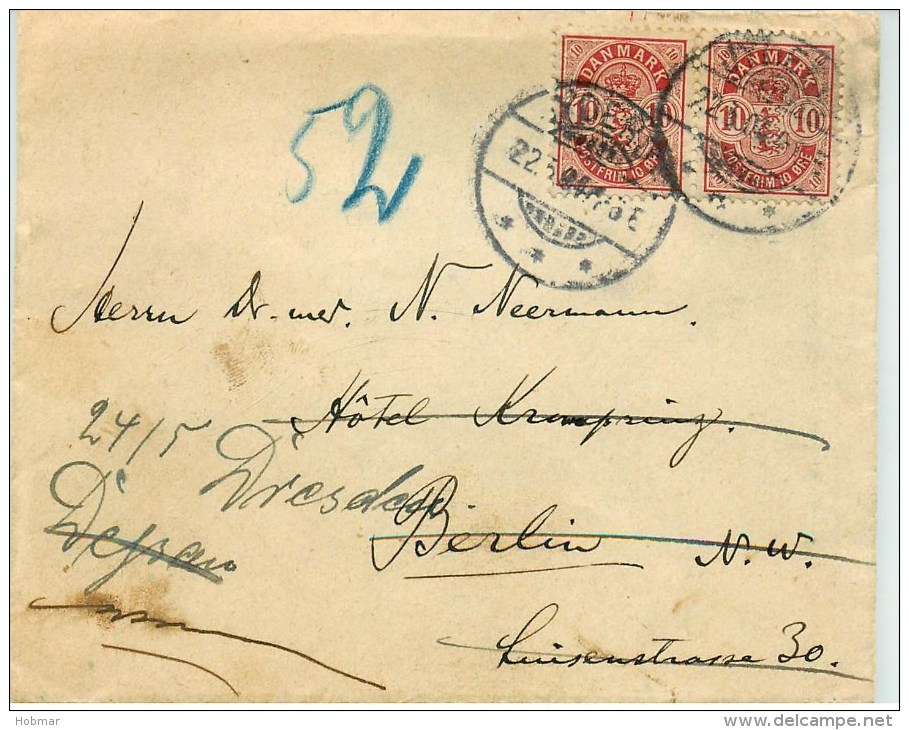 10 DANMARK 10
10 10
POSTFRIM. 10 ØRE
10 DANMARK 10
10 10
POSTFRIM. 10 ØRE
52
22.5
Herrn Dr. med. N. Neermann.
Hôtel Kronprinz.
24/5
Dresden
Dessau
Berlin N.W.
Luisenstrasse 30.
Hobmar
www.delcampe.net